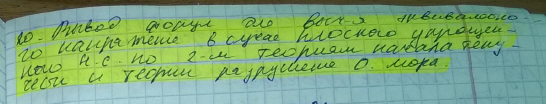 20. Вывод формул для вычо эквивалентно
го напряжение в случае плоского упрощен-
ного н.с. по 2-м теориям начала теку-
чести и теории разрушение О. Мора.